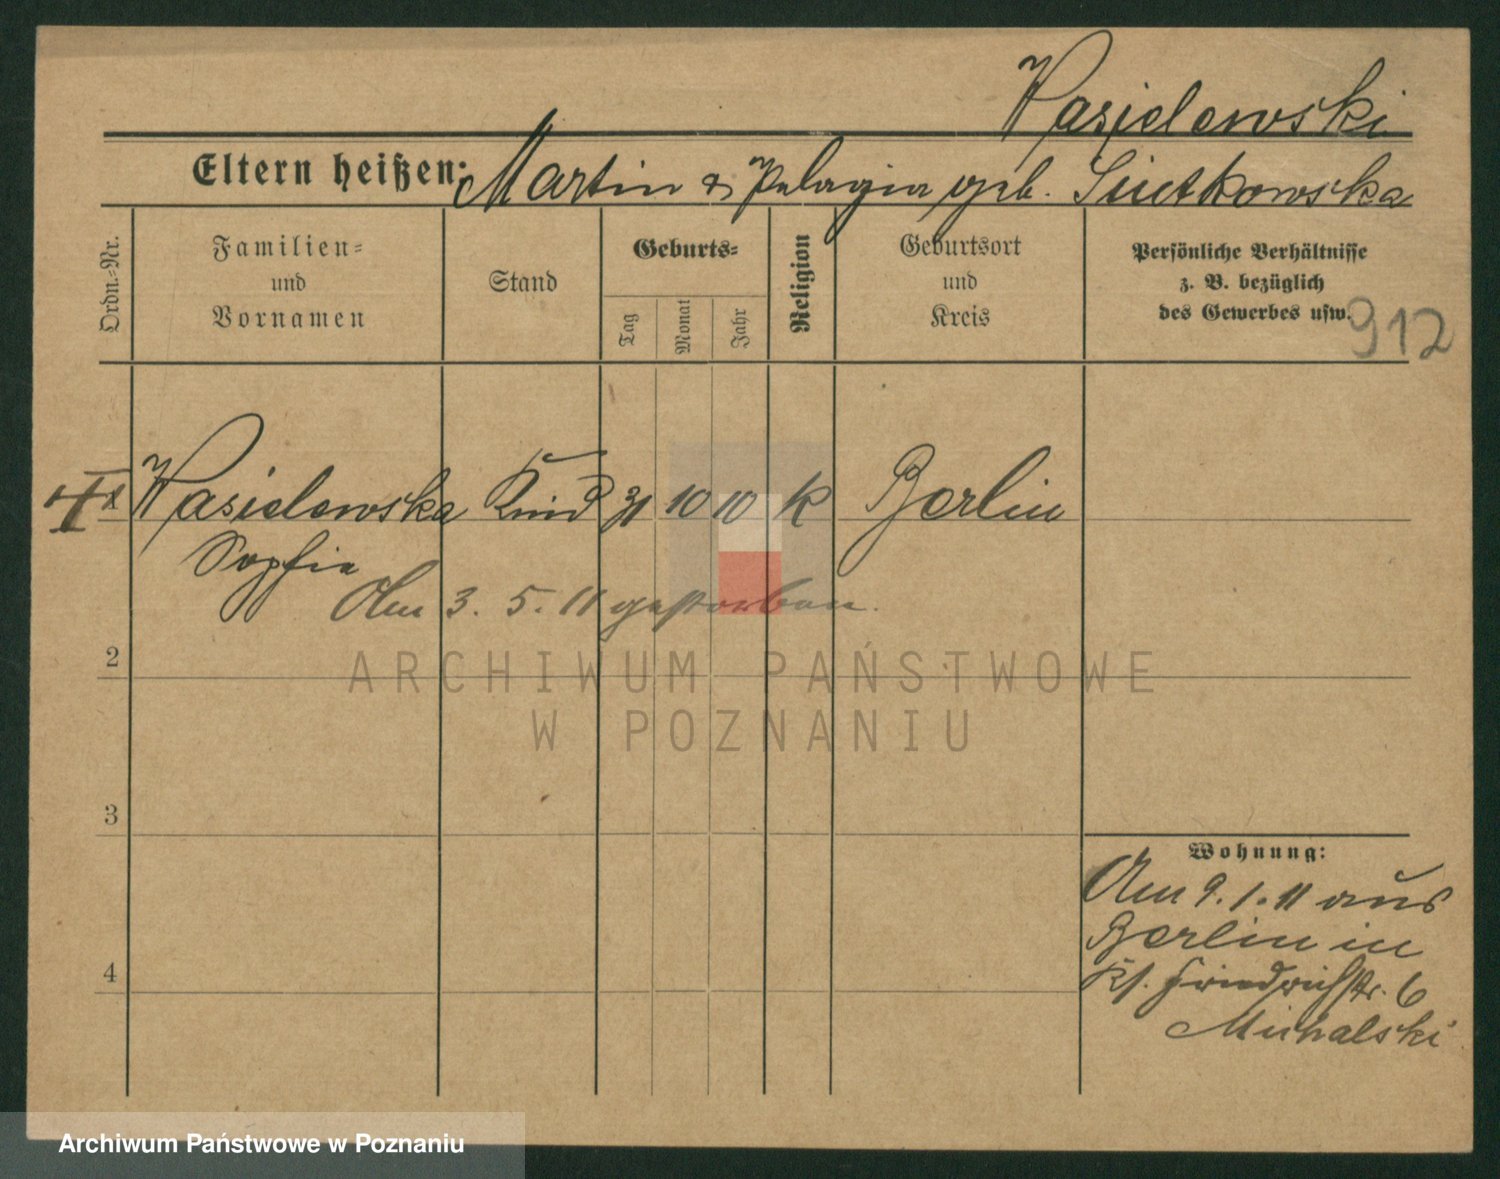 Wasielewski
Eltern heißen: Martin & Pelagia geb. Siutkowska
Ordn.-Nr.
Familien-
und
Vornamen
Stand
Geburts-
Tag
Monat
Jahr
Religion
Geburtsort
und
Kreis
Persönliche Verhältnisse
z. B. bezüglich
des Gewerbes usw.
912
Wasielewska Kind 31 10 10 K Berlin
Sophie
Am 3. 5. 11 gestorben.
2
ARCHIWUM PAŃSTWOWE
W POZNANIU
3
Wohnung:
Am 9. 1. 11 aus
Berlin in
Kl. Friedrichstr. 6
Michalski
4
Archiwum Państwowe w Poznaniu